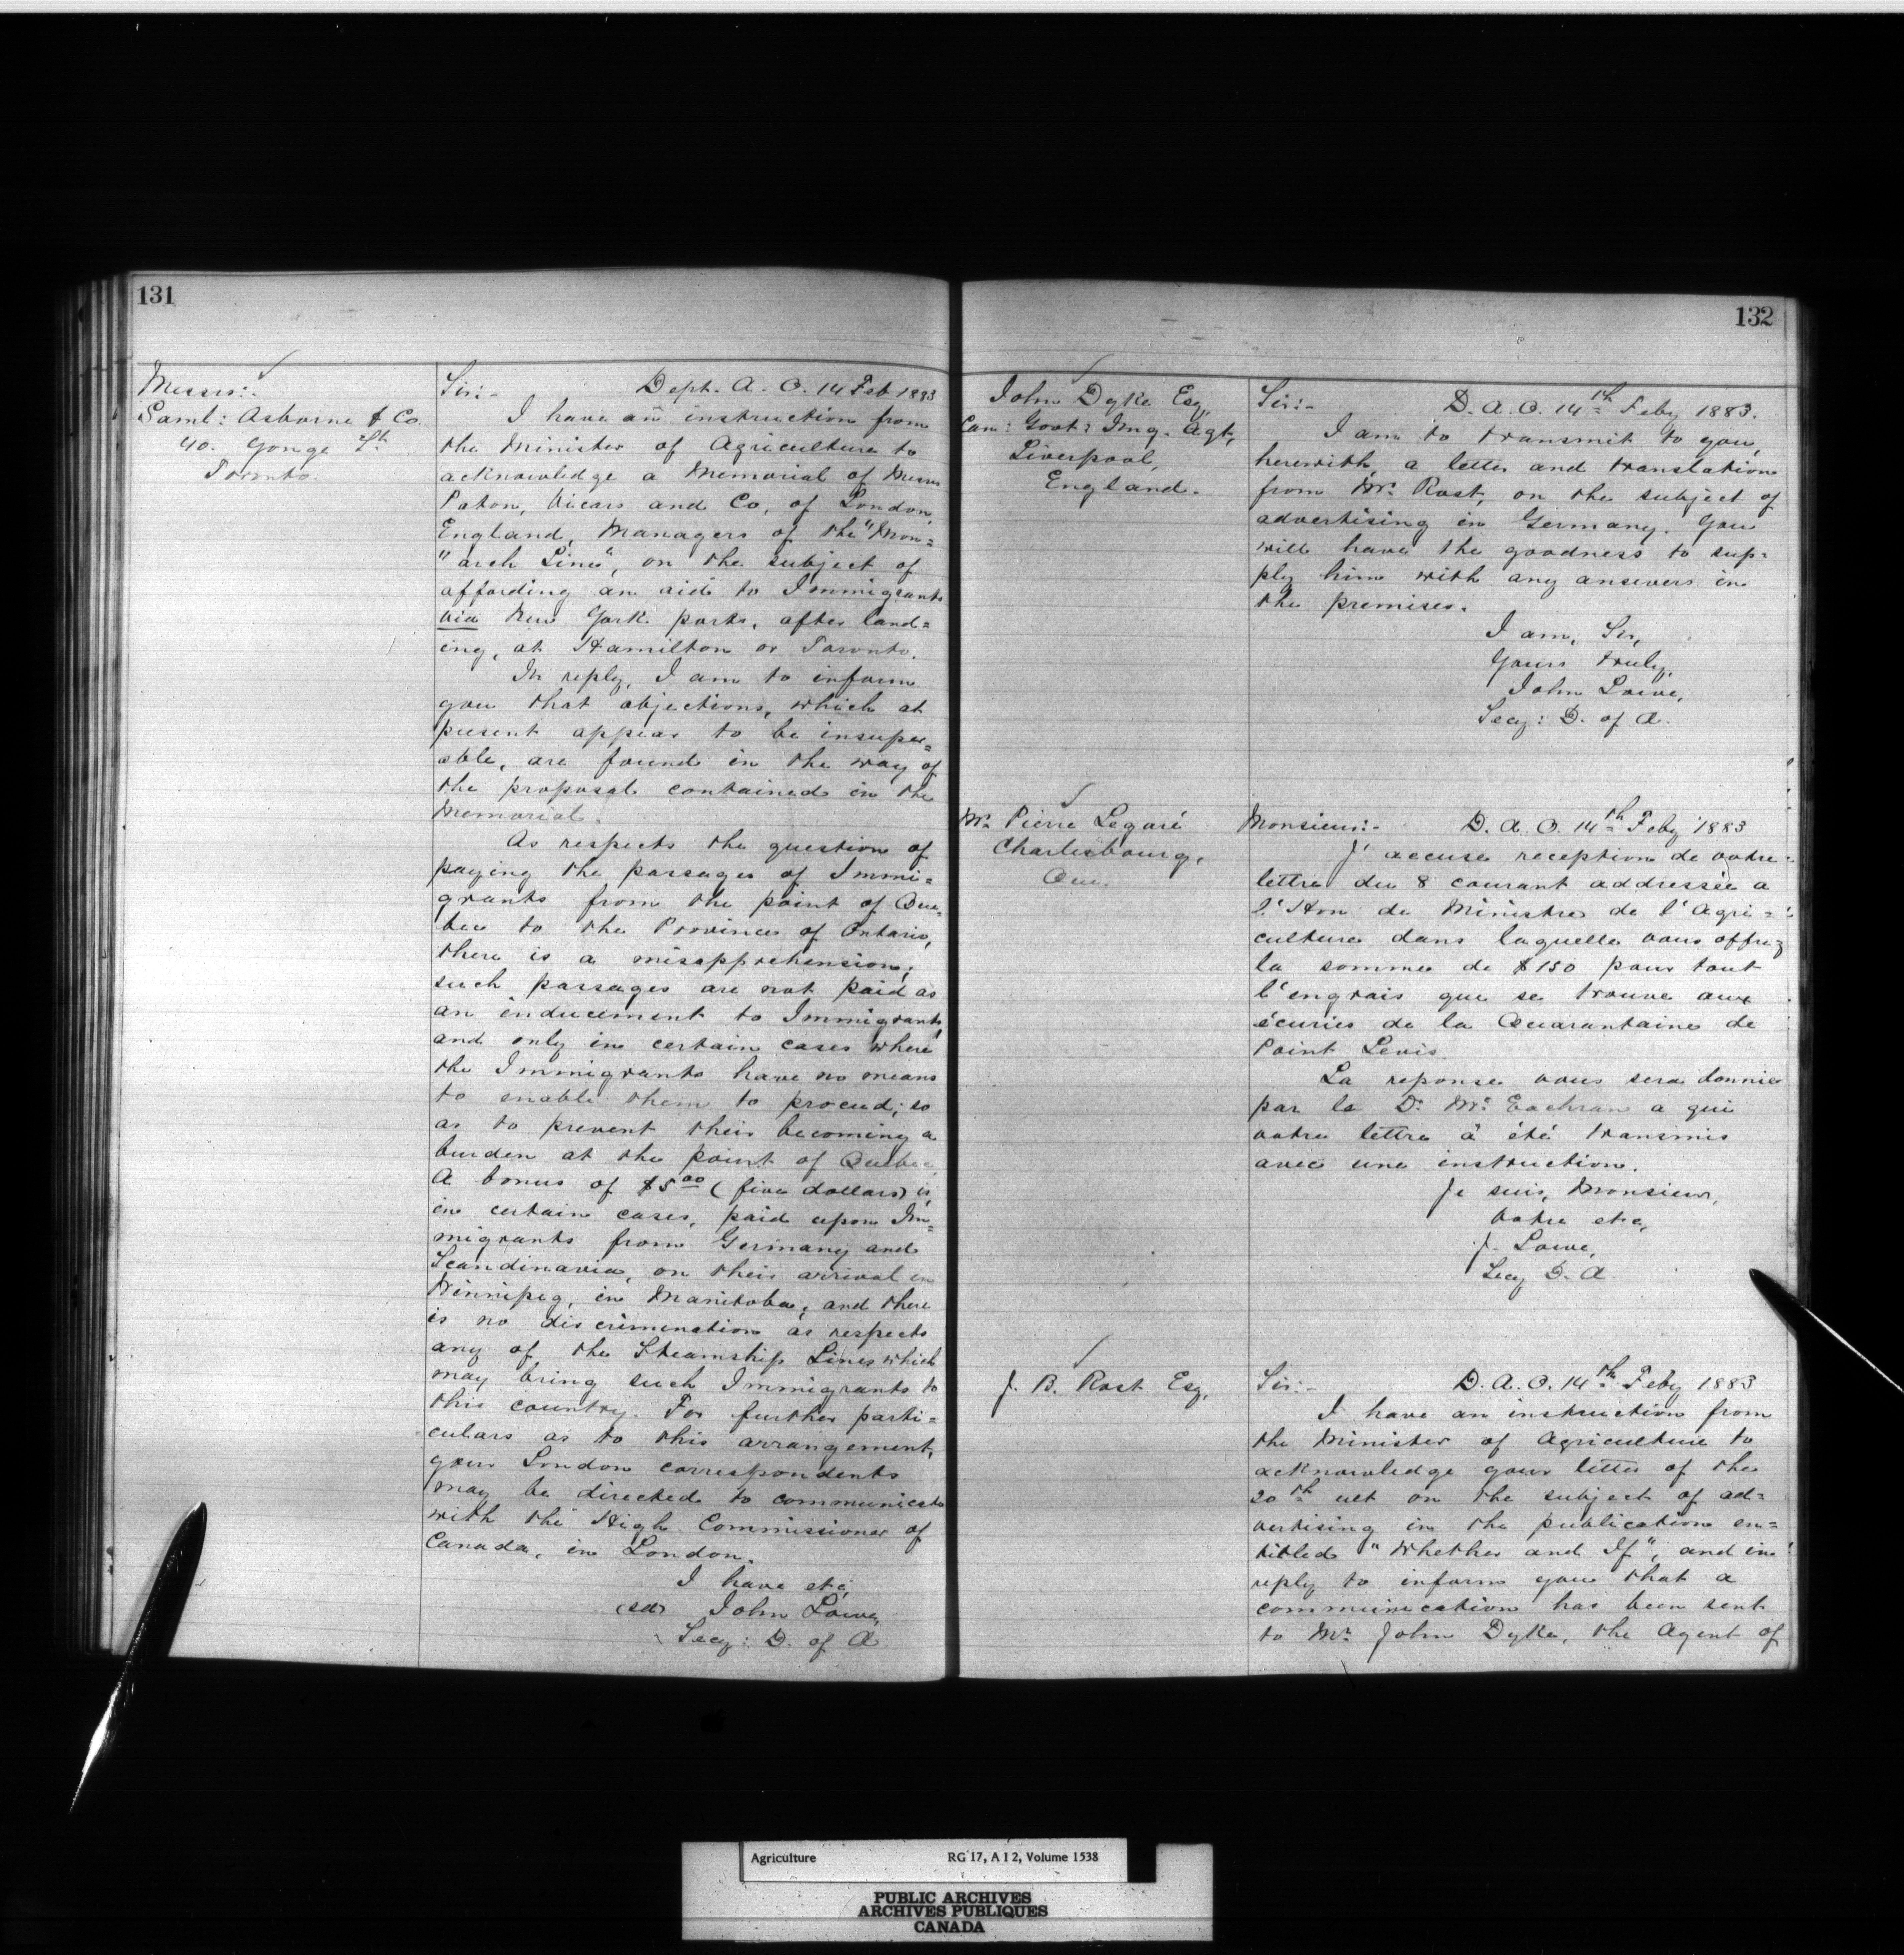 131
Messrs:
Saml: Osborne & Co.
40. Yonge St.
Toronto.
Sir:- Dept. A. O. 14 Feb 1883
I have an instruction from
the Minister of Agriculture to
acknowledge a Memorial of Messrs
Paton, Vicars and Co, of London,
England, Managers of the "Mon=
"arch Line", on the subject of
affording an aid to Immigrants
via New York ports, after land=
ing, at Hamilton or Toronto.
In reply, I am to inform
you that objections, which at
present appear to be insuper=
able, are found in the way of
the proposal contained in the
Memorial.
As respects the question of
paying the passages of Immi=
grants from the point of Que=
bec to the Province of Ontario,
there is a misapprehension;
such passages are not paid as
an inducement to Immigrants,
and only in certain cases where
the Immigrants have no means
to enable them to proceed; so
as to prevent their becoming a
burden at the point of Quebec.
A bonus of $5.00 (five dollars) is,
in certain cases, paid upon Im=
migrants from Germany and
Scandinavia, on their arrival in
Winnipeg, in Manitoba; and there
is no discrimination as respects
any of the Steamship Lines which
may bring such Immigrants to
this country. For further parti=
culars as to this arrangement,
your London correspondents
may be directed to communicate
with the High Commissioner of
Canada, in London.
I have etc,
(sd) John Lowe,
Secy: D. of A.
132
John Dyke Esq,
Can: Govt: Img. Agt,
Liverpool,
England.
Sir:- D. A. O. 14th Feby 1883.
I am to transmit to you,
herewith, a letter and translation
from Mr. Rost, on the subject of
advertising in Germany. You
will have the goodness to sup=
ply him with any answers in
the premises.
I am, Sir,
Yours truly,
John Lowe,
Secy: D. of A.
Mr. Pierre Legaré
Charlesbourg,
Que.
Monsieur:- D. A. O. 14th Feby 1883
J'accuse reception de votre
lettre du 8 courant addressée a
l'Hon de Ministre de l'Agri=
culture dans laquelle vous offrez
la somme de $150 pour tout
l'engrais que se trouve aux
écuries de la Quarantaine de
Point Levis.
La reponse vous sera donnie
par le Dr. McEachran a qui
votre lettre à été transmis
avec une instruction.
Je suis, Monsieur,
Votre etc,
J. Lowe,
Secy D. A
J. B. Rost Esq,
Sir:- D. A. O. 14th Feby 1883
I have an instruction from
the Minister of Agriculture to
acknowledge your letter of the
20th ult on the subject of ad=
vertising in the publication en=
titled "Whether and If", and in
reply to inform you that a
communication has been sent
to Mr. John Dyke, the Agent of
Agriculture RG 17, A I 2, Volume 1538
PUBLIC ARCHIVES
ARCHIVES PUBLIQUES
CANADA